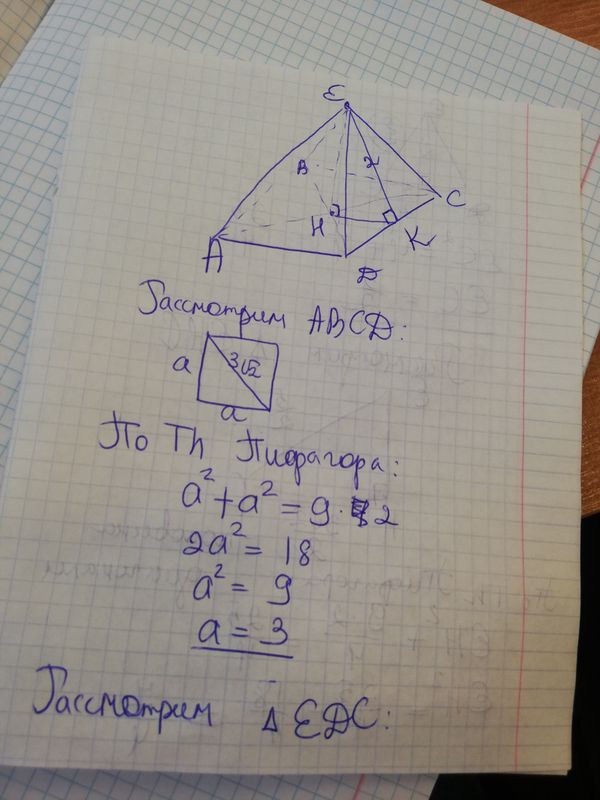 E
B
2
C
H
K
A
D
Рассмотрим ABCD:
a
3√2
a
По Th Пифагора:
a² + a² = 9 · 2
2a² = 18
a² = 9
a = 3
Рассмотрим △ EDC: